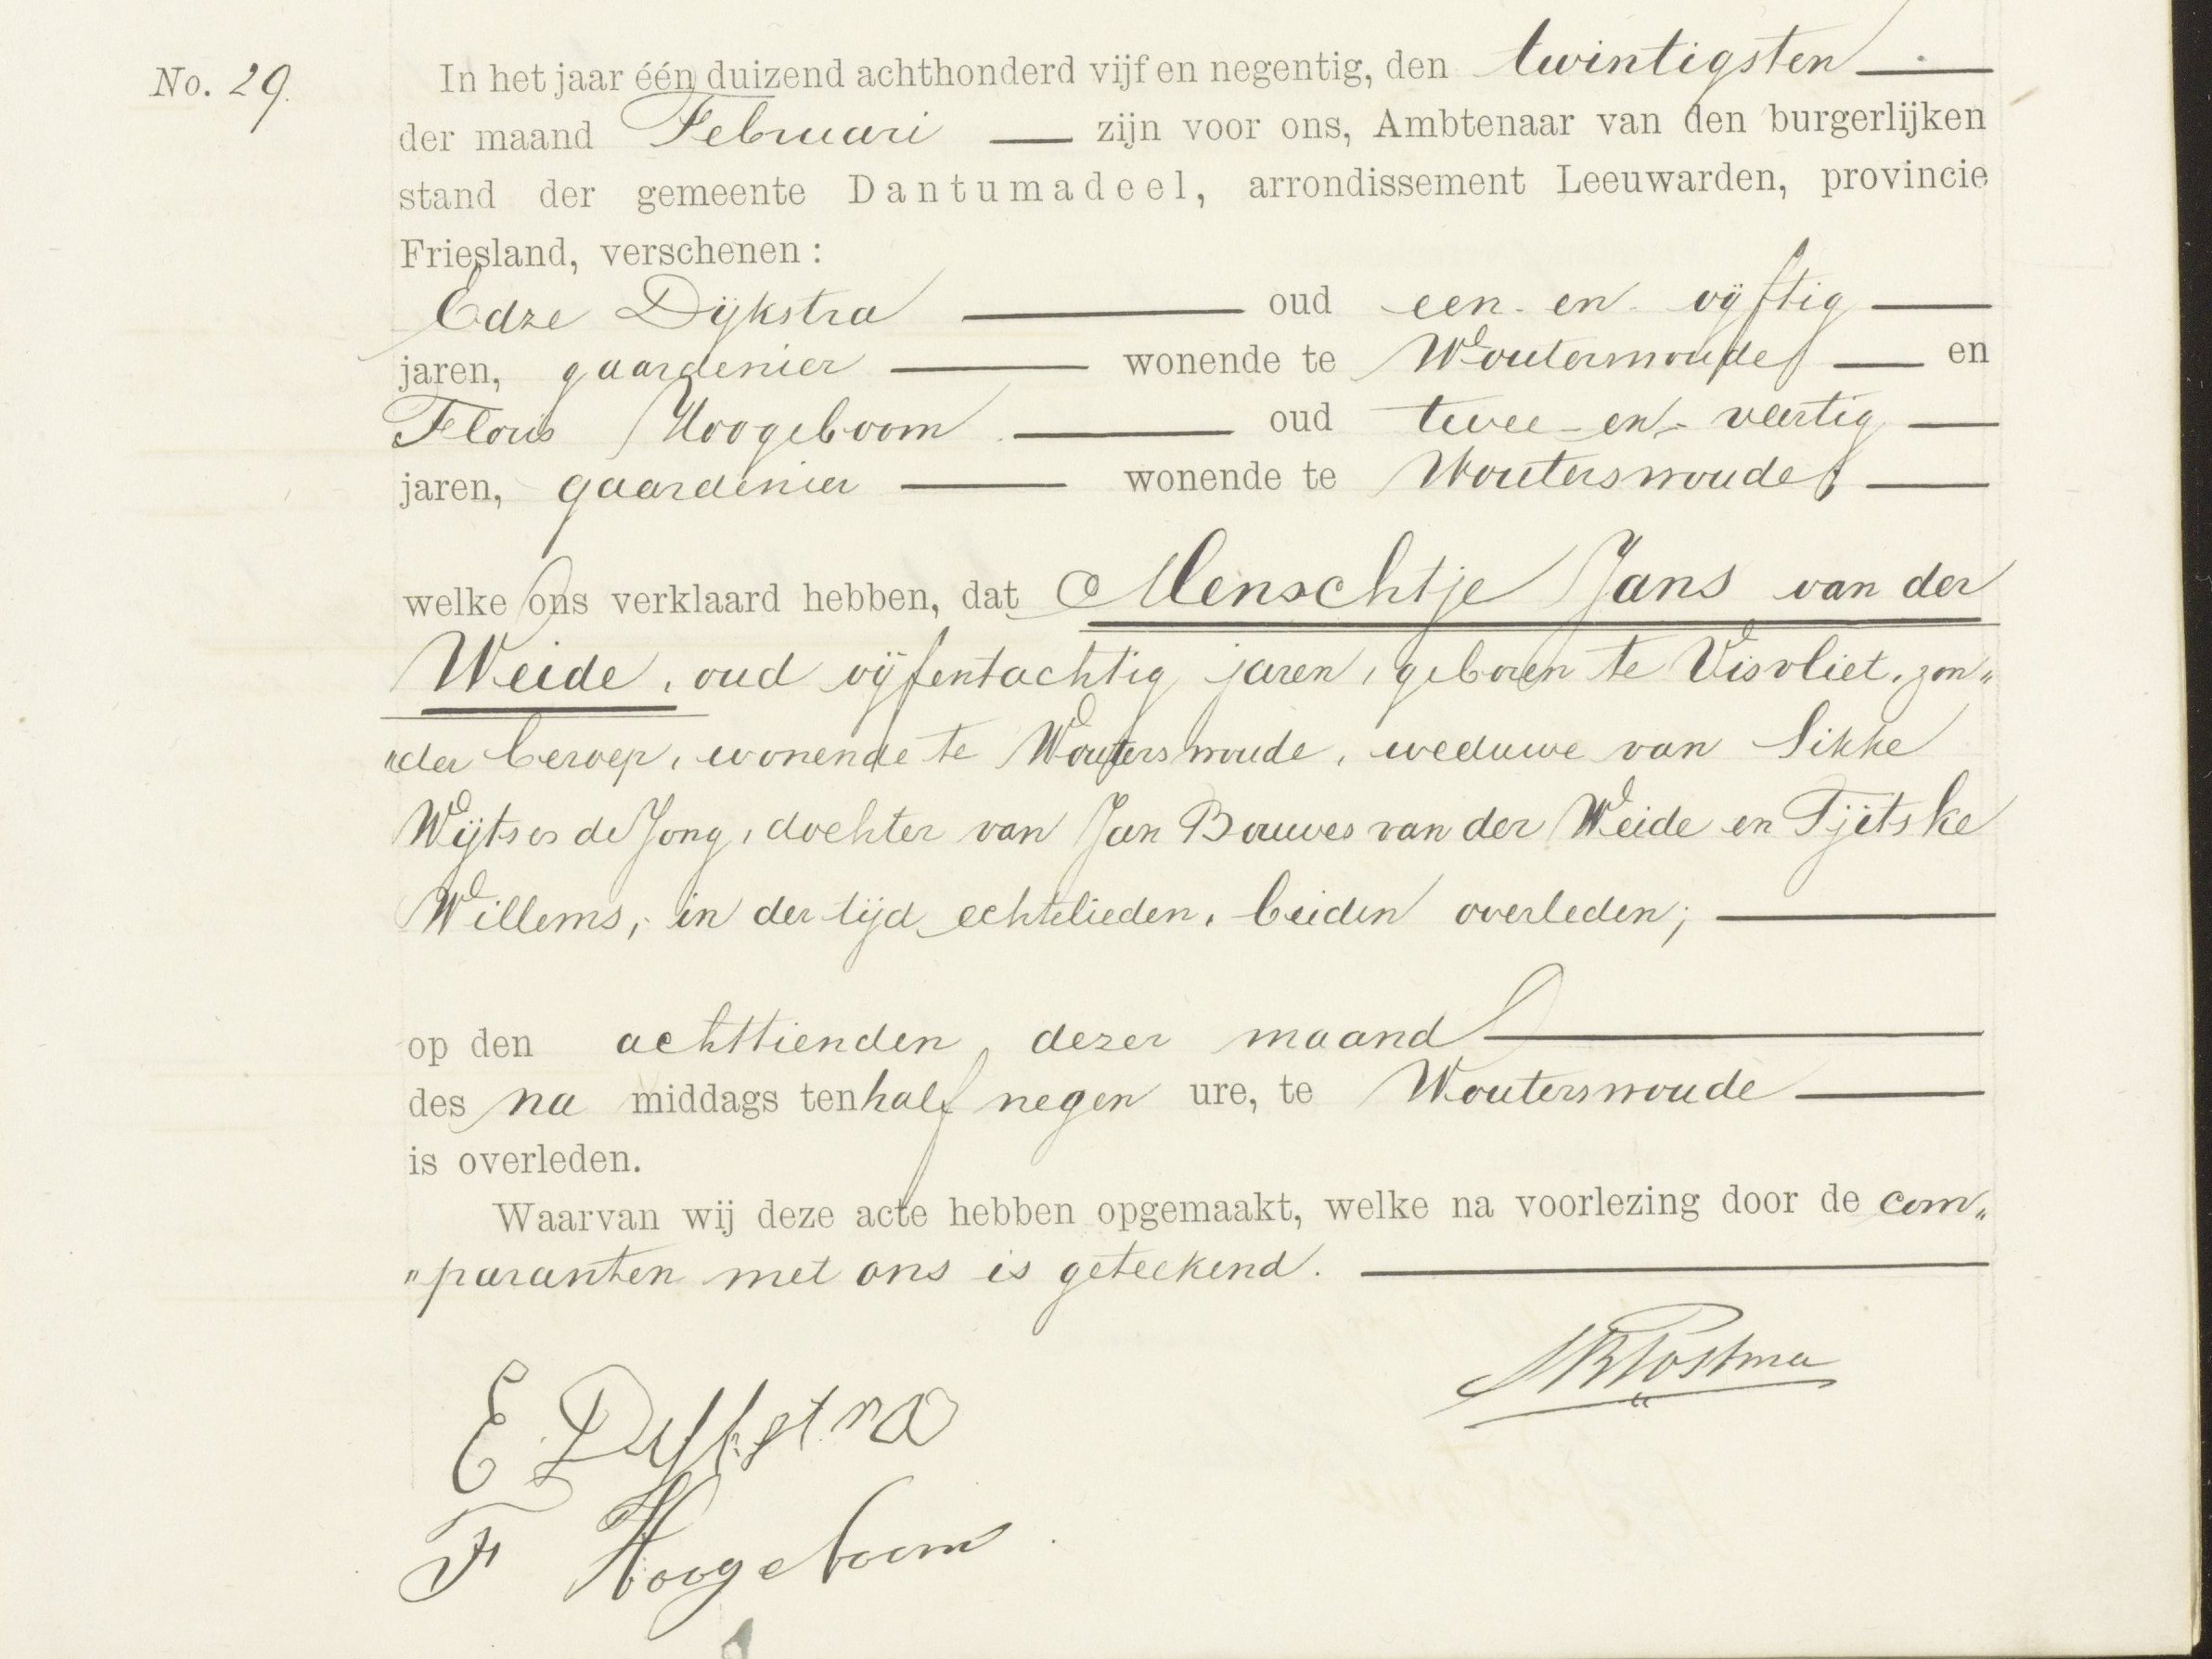 No. 29.
In het jaar één duizend achthonderd vijf en negentig, den twintigsten
der maand Februari zijn voor ons, Ambtenaar van den burgerlijken
stand der gemeente Dantumadeel, arrondissement Leeuwarden, provincie
Friesland, verschenen:
Edze Dijkstra oud een en vijftig
jaren, gaardenier wonende te Wouterswoude en
Floris Hoogeboom oud twee en veertig
jaren, gaardenier wonende te Wouterswoude
welke ons verklaard hebben, dat Menschtje Jans van der
Weide, oud vijfentachtig jaren, geboren te Visvliet, zon„
„der beroep, wonende te Wouterswoude, weduwe van Sikke
Wijtses de Jong, dochter van Jan Bouwes van der Weide en Tjitske
Willems, in der tijd echtelieden, beiden overleden;
op den achttienden dezer maand
des na middags ten half negen ure, te Wouterswoude
is overleden.
Waarvan wij deze acte hebben opgemaakt, welke na voorlezing door de com„
„paranten met ons is geteekend.
Postma
E Dijkstra
F Hoogeboom